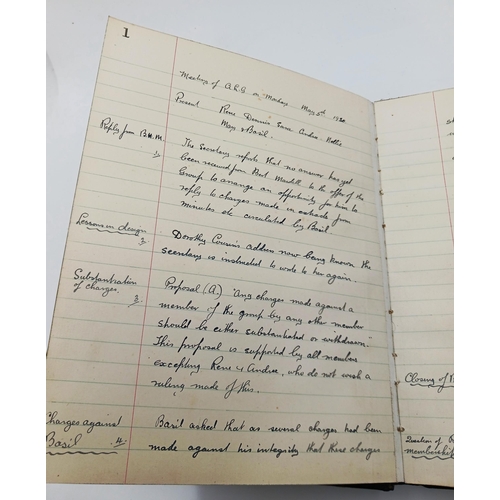 1
Meeting of A.R.G. on Monday May 5th
Present Rene Dennis Jane Andre Nellie
May & Basil.
Reply from B.M.M.
1.
The Secretary reports that no answer has yet
been received from Bert Mardell to the offer of the
Group to arrange an opportunity for him to
reply to charges made in extracts from
minutes etc circulated by Basil
Lesson on design
2.
Dorothy Cousin's address now being known the
secretary is instructed to write to her again.
Substantiation
of charges.
3.
Proposal (A) "Any charges made against a
member of the group by any other member
should be either substantiated or withdrawn"
This proposal is supported by all members
excepting Rene & Andre, who do not wish a
ruling made of this.
Charges against
Basil 4.
Basil asked that as several charges had been
made against his integrity that these charges
Closing of
Question of
membership